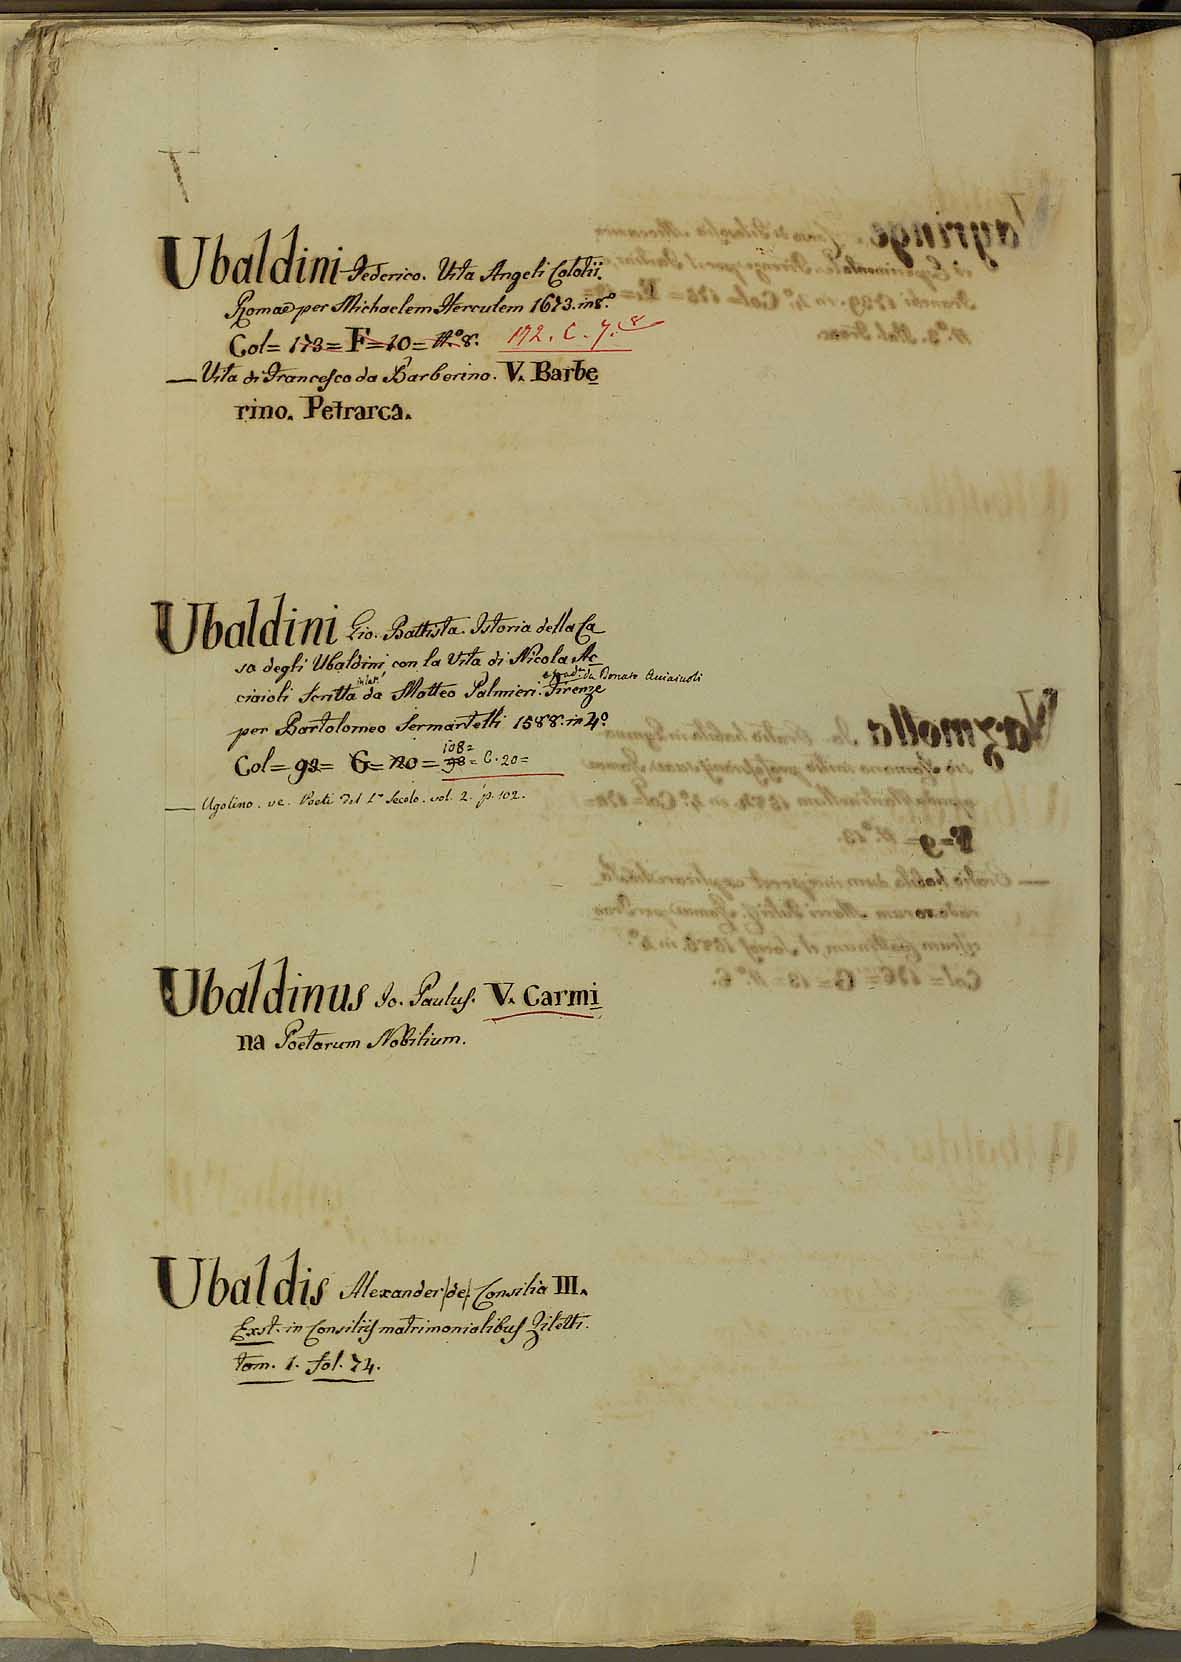 Ubaldini Federico. Vita Angeli Colotii.
Romae per Michaelem Herculem 1673. in 8.º
Col= 173= F= 10= N.º 8. 172. C. 7. 8
— Vita di Francesco da Barberino. V. Barbe
rino. Petrarca.
Ubaldini Gio. Battista. Istoria della Ca
sa degli Ubaldini con la Vita di Nicola Ac
ciaioli scritta in lat. da Matteo Palmieri. e trad.ta da Donato Acciaiuoli Firenze
per Bartolomeo Sermartelli 1588. in 4.º
Col= 92= G= 20= 98 108= C. 20=
— Ugolino. ve. Poeti del 1.º Secolo. vol. 2. p. 102.
Ubaldinus Jo. Paulus. V. Carmi
na Poetarum Nobilium.
Ubaldis Alexander (de) Consilia III.
Exst. in Consiliis matrimonialibus Ziletti.
tom. 1. fol. 74.